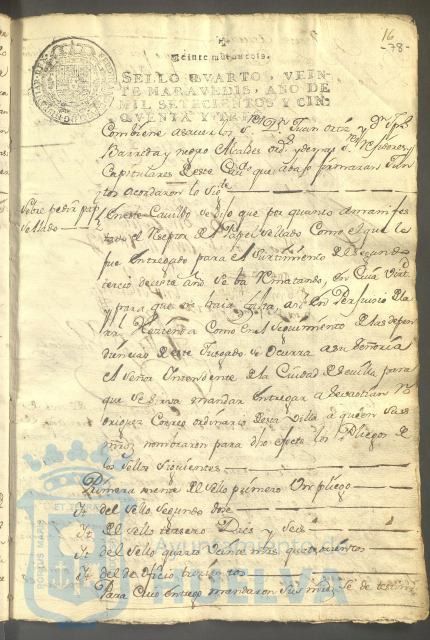 16
-78-
Veinte maravedis.
SELLO QVARTO, VEIN-
TE MARAVEDIS, AÑO DE
MIL SETECIENTOS Y CIN-
QVENTA Y TRES.
Conviene a saver los S.res Dn. Juan Ortiz y Dn.
Barreda y negro Alcaldes ord.s y demas S.res
Capitulares deste Cau.do que abajo firmaran Jun-
tos acordaron lo sig.te
Sobre pedir pap.l
Sellado
En este Cauildo se dijo que por quanto a manifes
tado el Rezeptor del Papel sellado Como el que le
fue entregado para el surtimiento del segundo
terzio de este año se ba rematando, en Cuia
y para que no haia falta, asi en Perjuicio de la
Rl. Hazienda Como en el seguimiento de las depen
dencias de este Juzgado se Ocurra a su Señoria
el Señor Intendente de la Ciudad de Sevilla para
que se sirva mandar entregar a Sevastian
Correo ordinario desta Villa a quien Sus
mrds nombraron para dho efecto los Pliegos de
los Sellos siguientes
Primera mente del Sello primero Un pliego
It. del Sello Segundo doze
It. del Sello terzero Diez y Seis
It. del Sello quarto Veinte mas quatrocientos
It. del de oficio trezientos
Para Cuio entrego mandaron Sus mrds se de testim.o
PORTUS MARIS
ET TERRAE
Ayuntamiento de
HUELVA